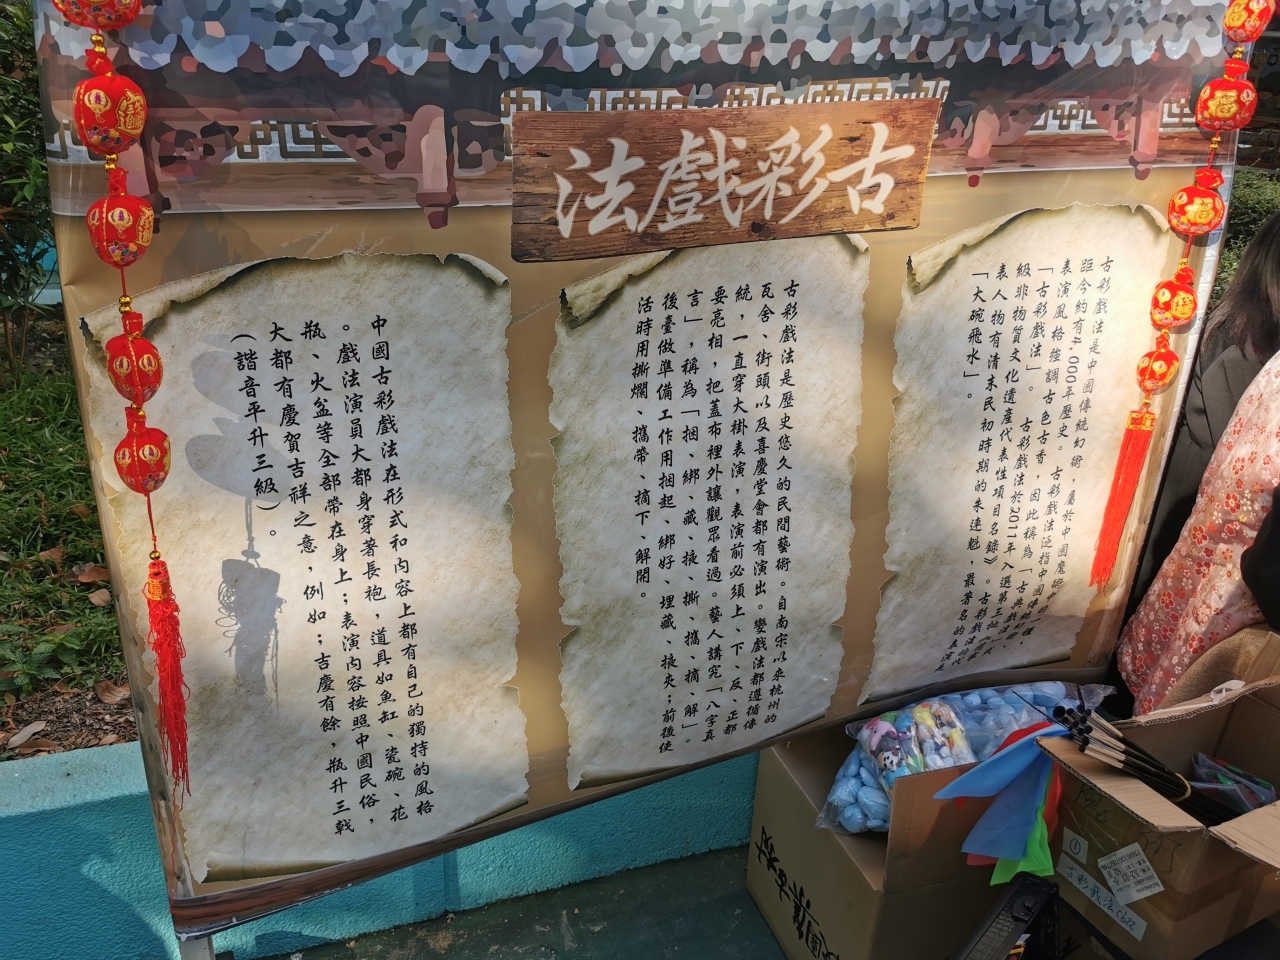 古彩戲法
古彩戲法是中國傳統幻術，屬於中國魔術
距今約有4,000年歷史。古彩戲法泛指中國傳統
表演風格強調古色古香，因此稱為「古典戲法」
「古彩戲法」。古彩戲法於2011年入選第三批
級非物質文化遺產代表性項目名錄》。古彩戲法的代
表人物有清末民初時期的朱連魁，最著名的表演
「大碗飛水」。
古彩戲法是歷史悠久的民間藝術。自南宋以來杭州的
瓦舍、街頭以及喜慶堂會都有演出。變戲法都遵循傳
統，一直穿大褂表演，表演前必須上、下、反、正都
要亮相，把蓋布裡外讓觀眾看過。藝人講究「八字真
言」，稱為「捆、綁、藏、掖、撕、攜、摘、解」。
後臺做準備工作用捆起、綁好、埋藏、掖夾；前後使
活時用撕爛、攜帶、摘下、解開。
中國古彩戲法在形式和內容上都有自己的獨特的風格
。戲法演員大都身穿著長袍，道具如魚缸、瓷碗、花
瓶、火盆等全部帶在身上；表演內容按照中國民俗，
大都有慶賀吉祥之意，例如；吉慶有餘，瓶升三戟
（諧音平升三級）。
古彩戲法